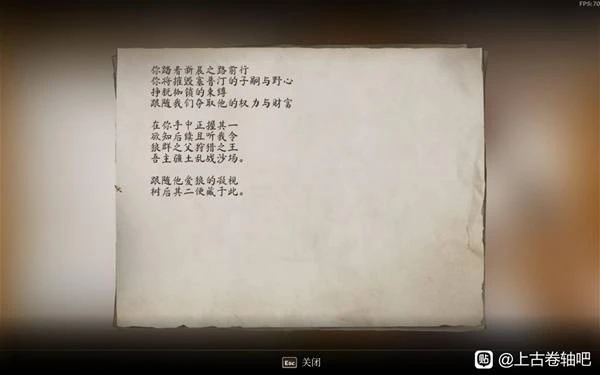 FPS:70
你踏着新晨之路前行
你将摧毁塞普汀的子嗣与野心
挣脱枷锁的束缚
跟随我们夺取他的权力与财富
在你手中正握其一
欲知后续且听我令
狼群之父狩猎之王
吾主疆土乱战沙场。
跟随他爱狼的凝视
树后其二便藏于此。
Esc 关闭
贴 @上古卷轴吧